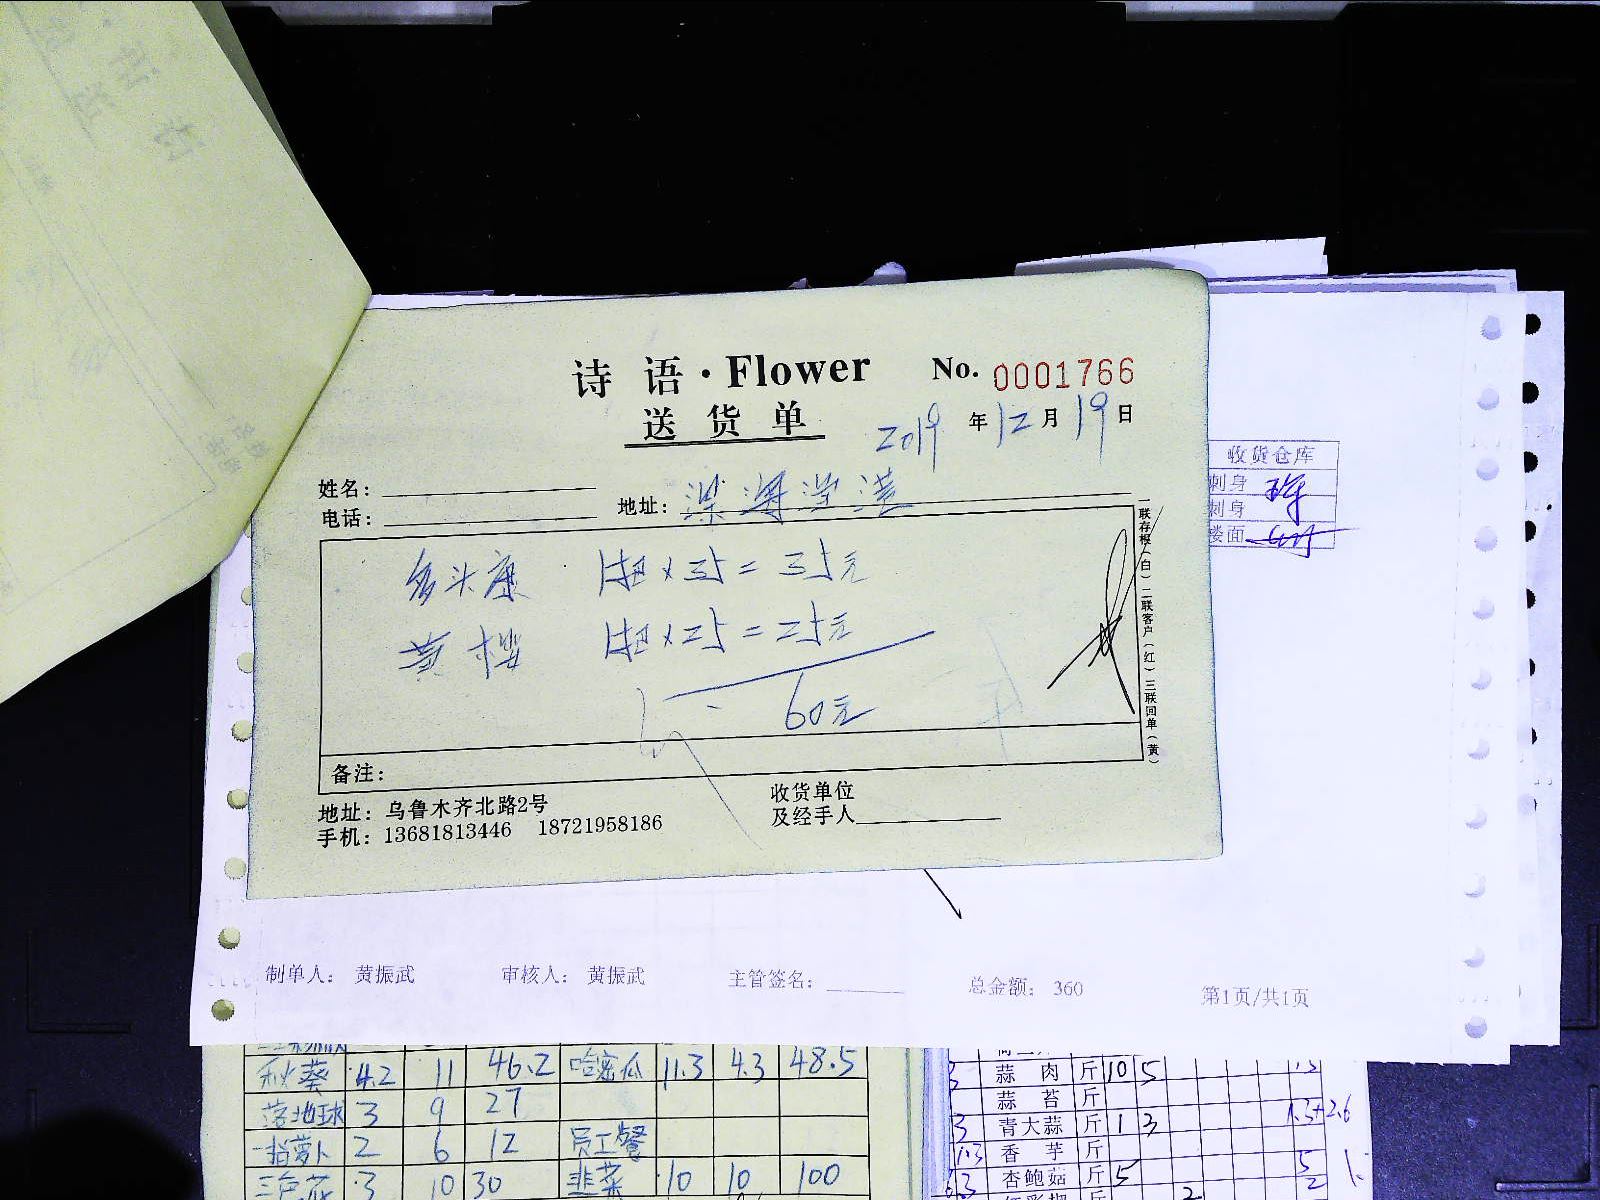 诗语·Flower No. 0001766
送货单 2019年12月19日
姓名：
电话： 地址：
多头康 1扎×35=35元
黄 1扎×25=25元
60元
备注：
一联存根（白）二联客户（红）三联回单（黄）
地址：乌鲁木齐北路2号 收货单位
手机：13681813446 18721958186 及经手人
收货仓库
刺身
刺身
楼面
制单人： 黄振武 审核人： 黄振武 主管签名： 总金额： 360 第1页/共1页
秋葵 4.2 11 46.2 哈密瓜 11.3 4.3 48.5
落地球 3 9 27
一指萝卜 2 6 12 员工餐
三色花 3 10 30 韭菜 10 10 100
3 蒜肉 斤 10 5
蒜苔 斤
3 青大蒜 斤 1 3 1.3+2.6
1.3 香芋 斤
3 杏鲍菇 斤 5 5
2 2